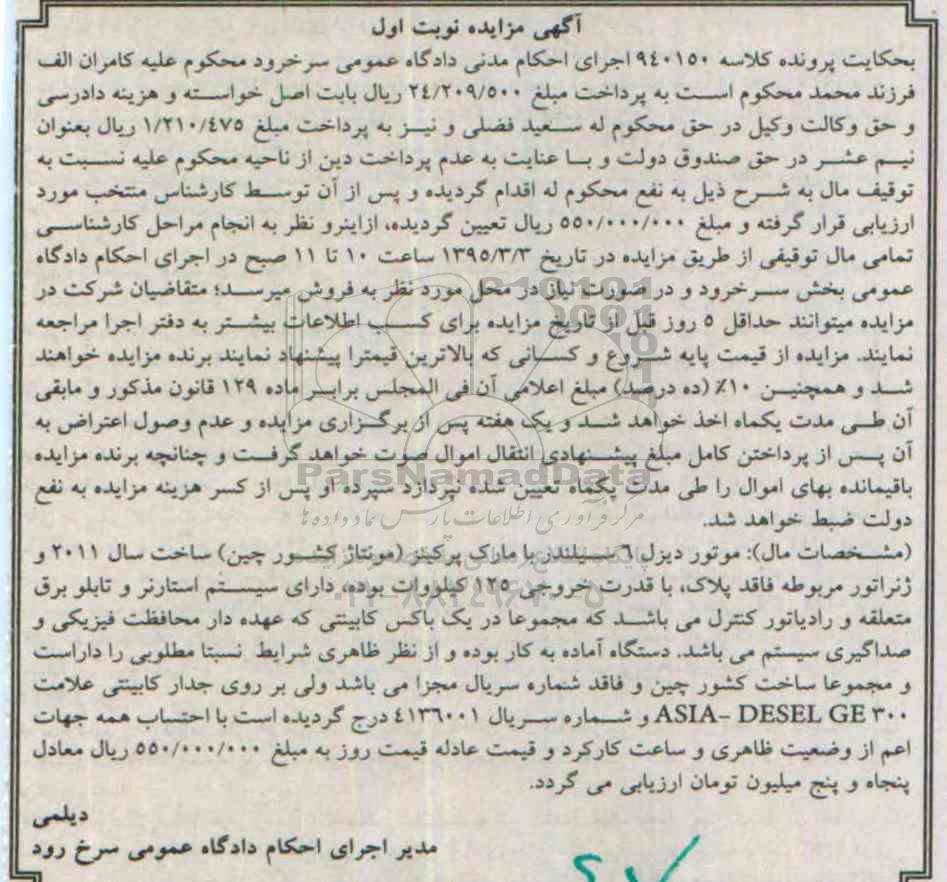 آگهی مزایده نوبت اول
بحکایت پرونده کلاسه ۹٤۰۱٥۰ اجرای احکام مدنی دادگاه عمومی سرخرود محکوم علیه کامران الف
فرزند محمد محکوم است به پرداخت مبلغ ۲٤/۲۰۹/٥۰۰ ریال بابت اصل خواسته و هزینه دادرسی
و حق وکالت وکیل در حق محکوم له سعید فضلی و نیز به پرداخت مبلغ ۱/۲۱۰/٤۷٥ ریال بعنوان
نیم عشر در حق صندوق دولت و با عنایت به عدم پرداخت دین از ناحیه محکوم علیه نسبت به
توقیف مال به شرح ذیل به نفع محکوم له اقدام گردیده و پس از آن توسط کارشناس منتخب مورد
ارزیابی قرار گرفته و مبلغ ٥٥۰/۰۰۰/۰۰۰ ریال تعیین گردیده، ازاینرو نظر به انجام مراحل کارشناسی
تمامی مال توقیفی از طریق مزایده در تاریخ ۱۳۹٥/۳/۳ ساعت ۱۰ تا ۱۱ صبح در اجرای احکام دادگاه
عمومی بخش سرخرود و در صورت نیاز در محل مورد نظر به فروش میرسد؛ متقاضیان شرکت در
مزایده میتوانند حداقل ٥ روز قبل از تاریخ مزایده برای کسب اطلاعات بیشتر به دفتر اجرا مراجعه
نمایند. مزایده از قیمت پایه شروع و کسانی که بالاترین قیمترا پیشنهاد نمایند برنده مزایده خواهند
شد و همچنین ۱۰٪ (ده درصد) مبلغ اعلامی آن فی المجلس برابر ماده ۱۲۹ قانون مذکور و مابقی
آن طی مدت یکماه اخذ خواهد شد و یک هفته پس از برگزاری مزایده و عدم وصول اعتراض به
آن پس از پرداختن کامل مبلغ پیشنهادی انتقال اموال صوت خواهد گرفت و چنانچه برنده مزایده
ParsNamadData
باقیمانده بهای اموال را طی مدت یکماه تعیین شده نپردازد سپرده او پس از کسر هزینه مزایده به نفع
مرکز فرآوری اطلاعات پارس نماد داده ها
دولت ضبط خواهد شد.
(مشخصات مال): موتور دیزل ٦ سیلندر با مارک پرکینز (مونتاژ کشور چین) ساخت سال ۲۰۱۱ و
ژنراتور مربوطه فاقد پلاک، با قدرت خروجی ۱۲٥ کیلووات بوده، دارای سیستم استارتر و تابلو برق
متعلقه و رادیاتور کنترل می باشد که مجموعا در یک باکس کابینتی که عهده دار محافظت فیزیکی و
صداگیری سیستم می باشد. دستگاه آماده به کار بوده و از نظر ظاهری شرایط نسبتا مطلوبی را داراست
و مجموعا ساخت کشور چین و فاقد شماره سریال مجزا می باشد ولی بر روی جدار کابینتی علامت
ASIA- DESEL GE ۳۰۰ و شماره سریال ٤۱۳٦۰۰۱ درج گردیده است با احتساب همه جهات
اعم از وضعیت ظاهری و ساعت کارکرد و قیمت عادله قیمت روز به مبلغ ٥٥۰/۰۰۰/۰۰۰ ریال معادل
پنجاه و پنج میلیون تومان ارزیابی می گردد.
دیلمی
مدیر اجرای احکام دادگاه عمومی سرخ رود